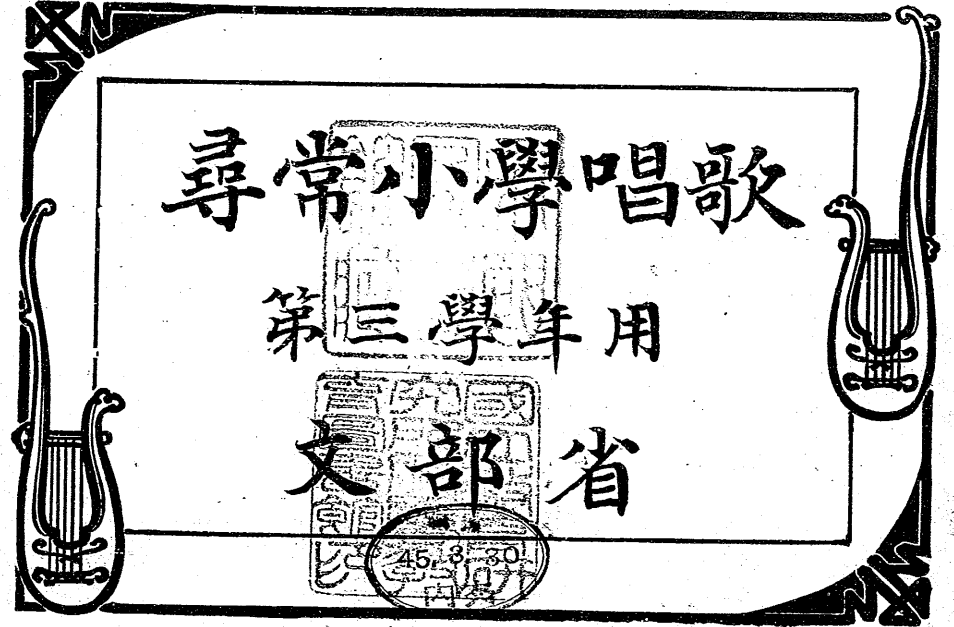 尋常小學唱歌
第三學年用
文部省
45.3.30